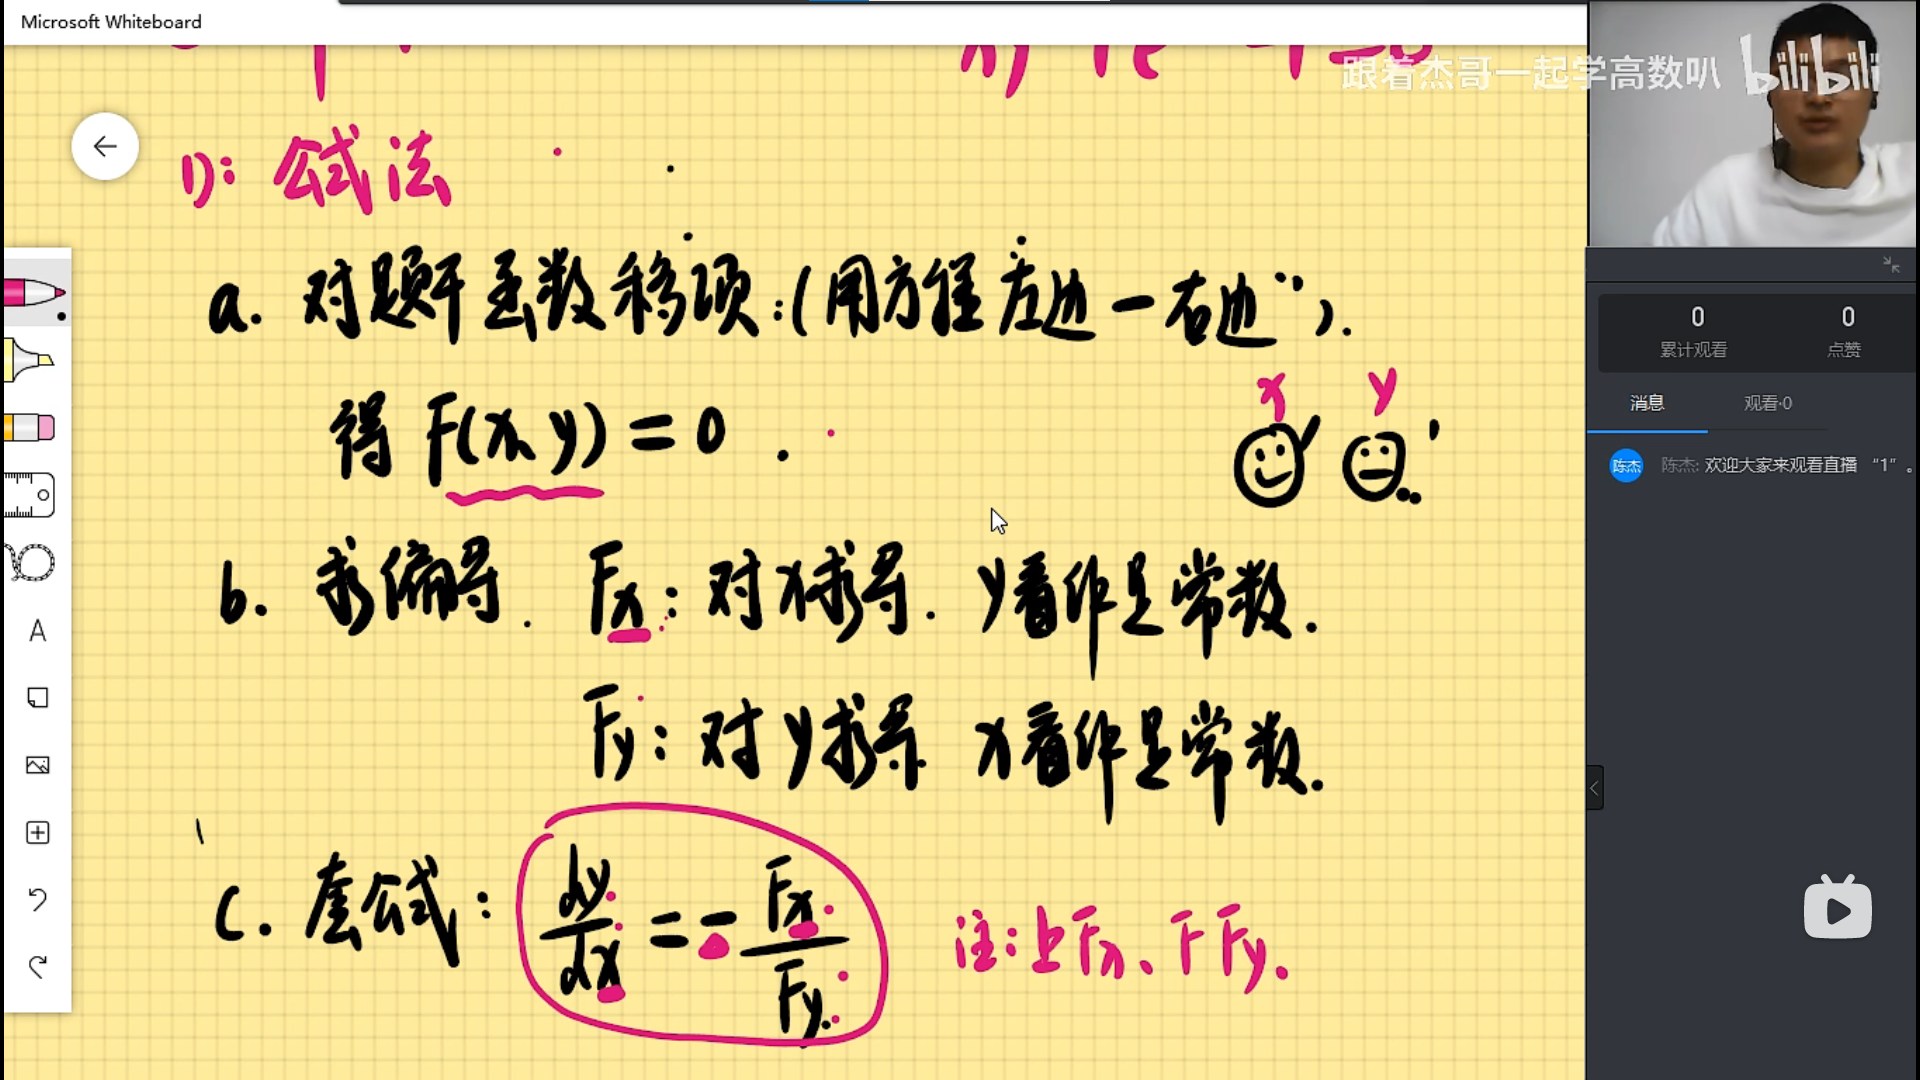 Microsoft Whiteboard
跟着杰哥一起学高数叭 bilibili
1): 公式法
a. 对题干函数移项:(用方程左边-右边").
得 F(x,y)=0.
x y
b. 求偏导. Fx: 对x求导. y看作是常数.
Fy: 对y求导. x看作是常数.
c. 套公式: dy/dx = - Fx/Fy.
注:上Fx、下Fy.
A
0 0
累计观看 点赞
消息 观看·0
陈杰 陈杰: 欢迎大家来观看直播 “1”。